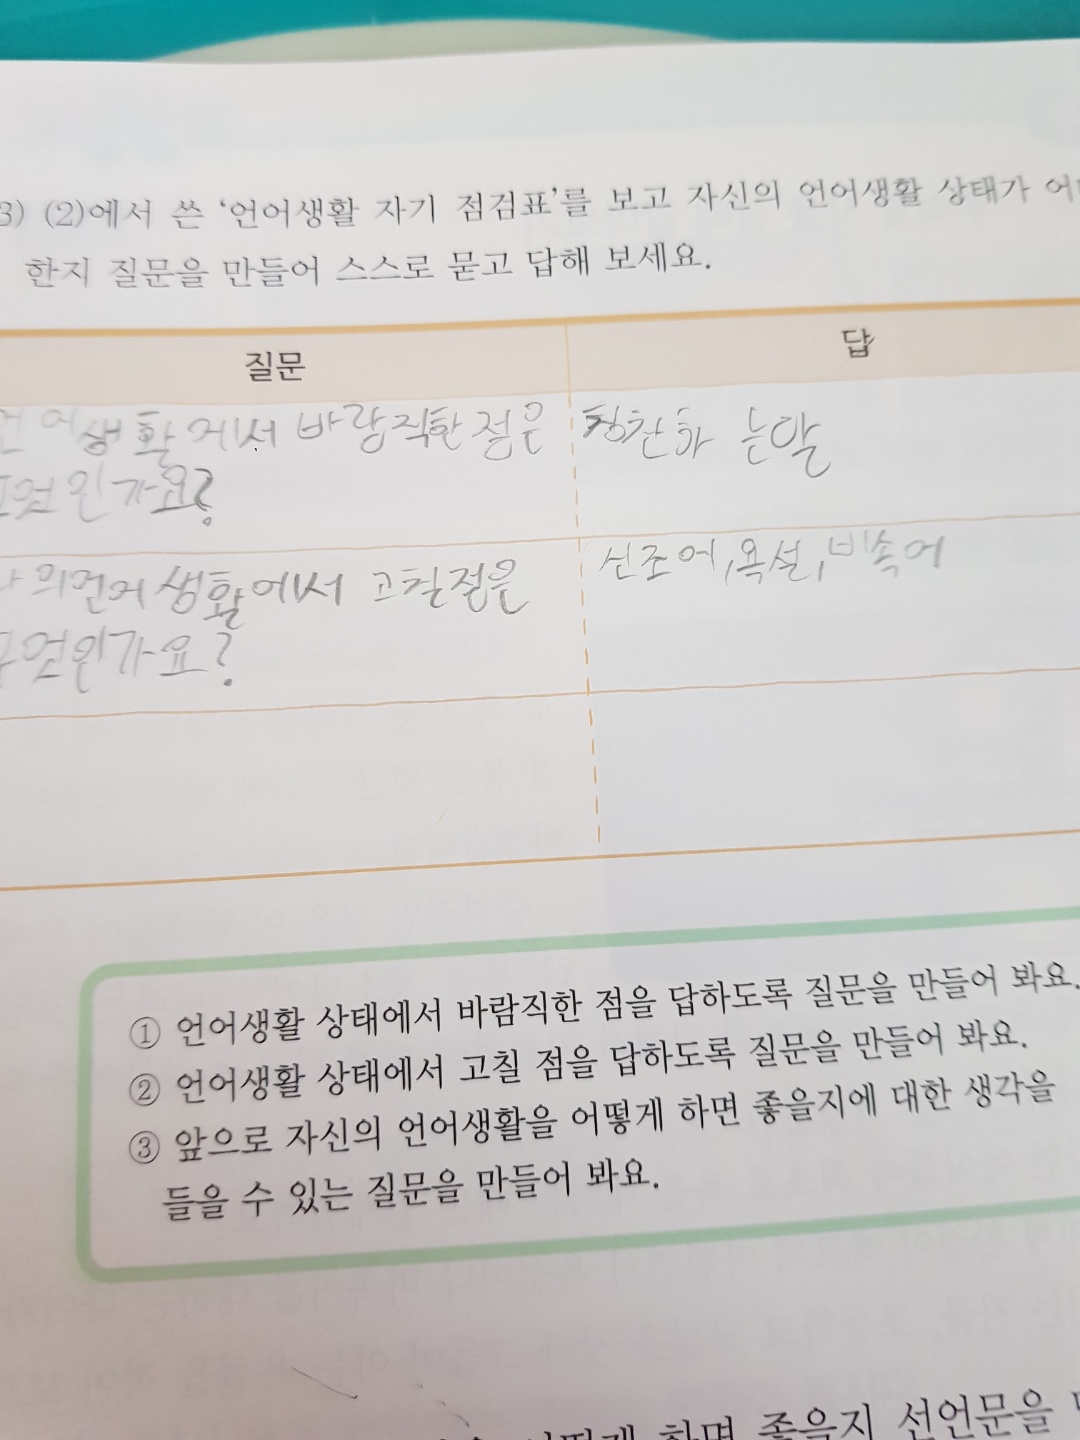 3) (2)에서 쓴 ‘언어생활 자기 점검표’를 보고 자신의 언어생활 상태가
한지 질문을 만들어 스스로 묻고 답해 보세요.
질문 답
언어생활에서 바람직한 점은 칭찬하는말
무엇인가요?
의언어생활에서 고칠점은 신조어,욕설,비속어
무엇인가요?
① 언어생활 상태에서 바람직한 점을 답하도록 질문을 만들어 봐요.
② 언어생활 상태에서 고칠 점을 답하도록 질문을 만들어 봐요.
③ 앞으로 자신의 언어생활을 어떻게 하면 좋을지에 대한 생각을
들을 수 있는 질문을 만들어 봐요.
하면 좋을지 선언문을